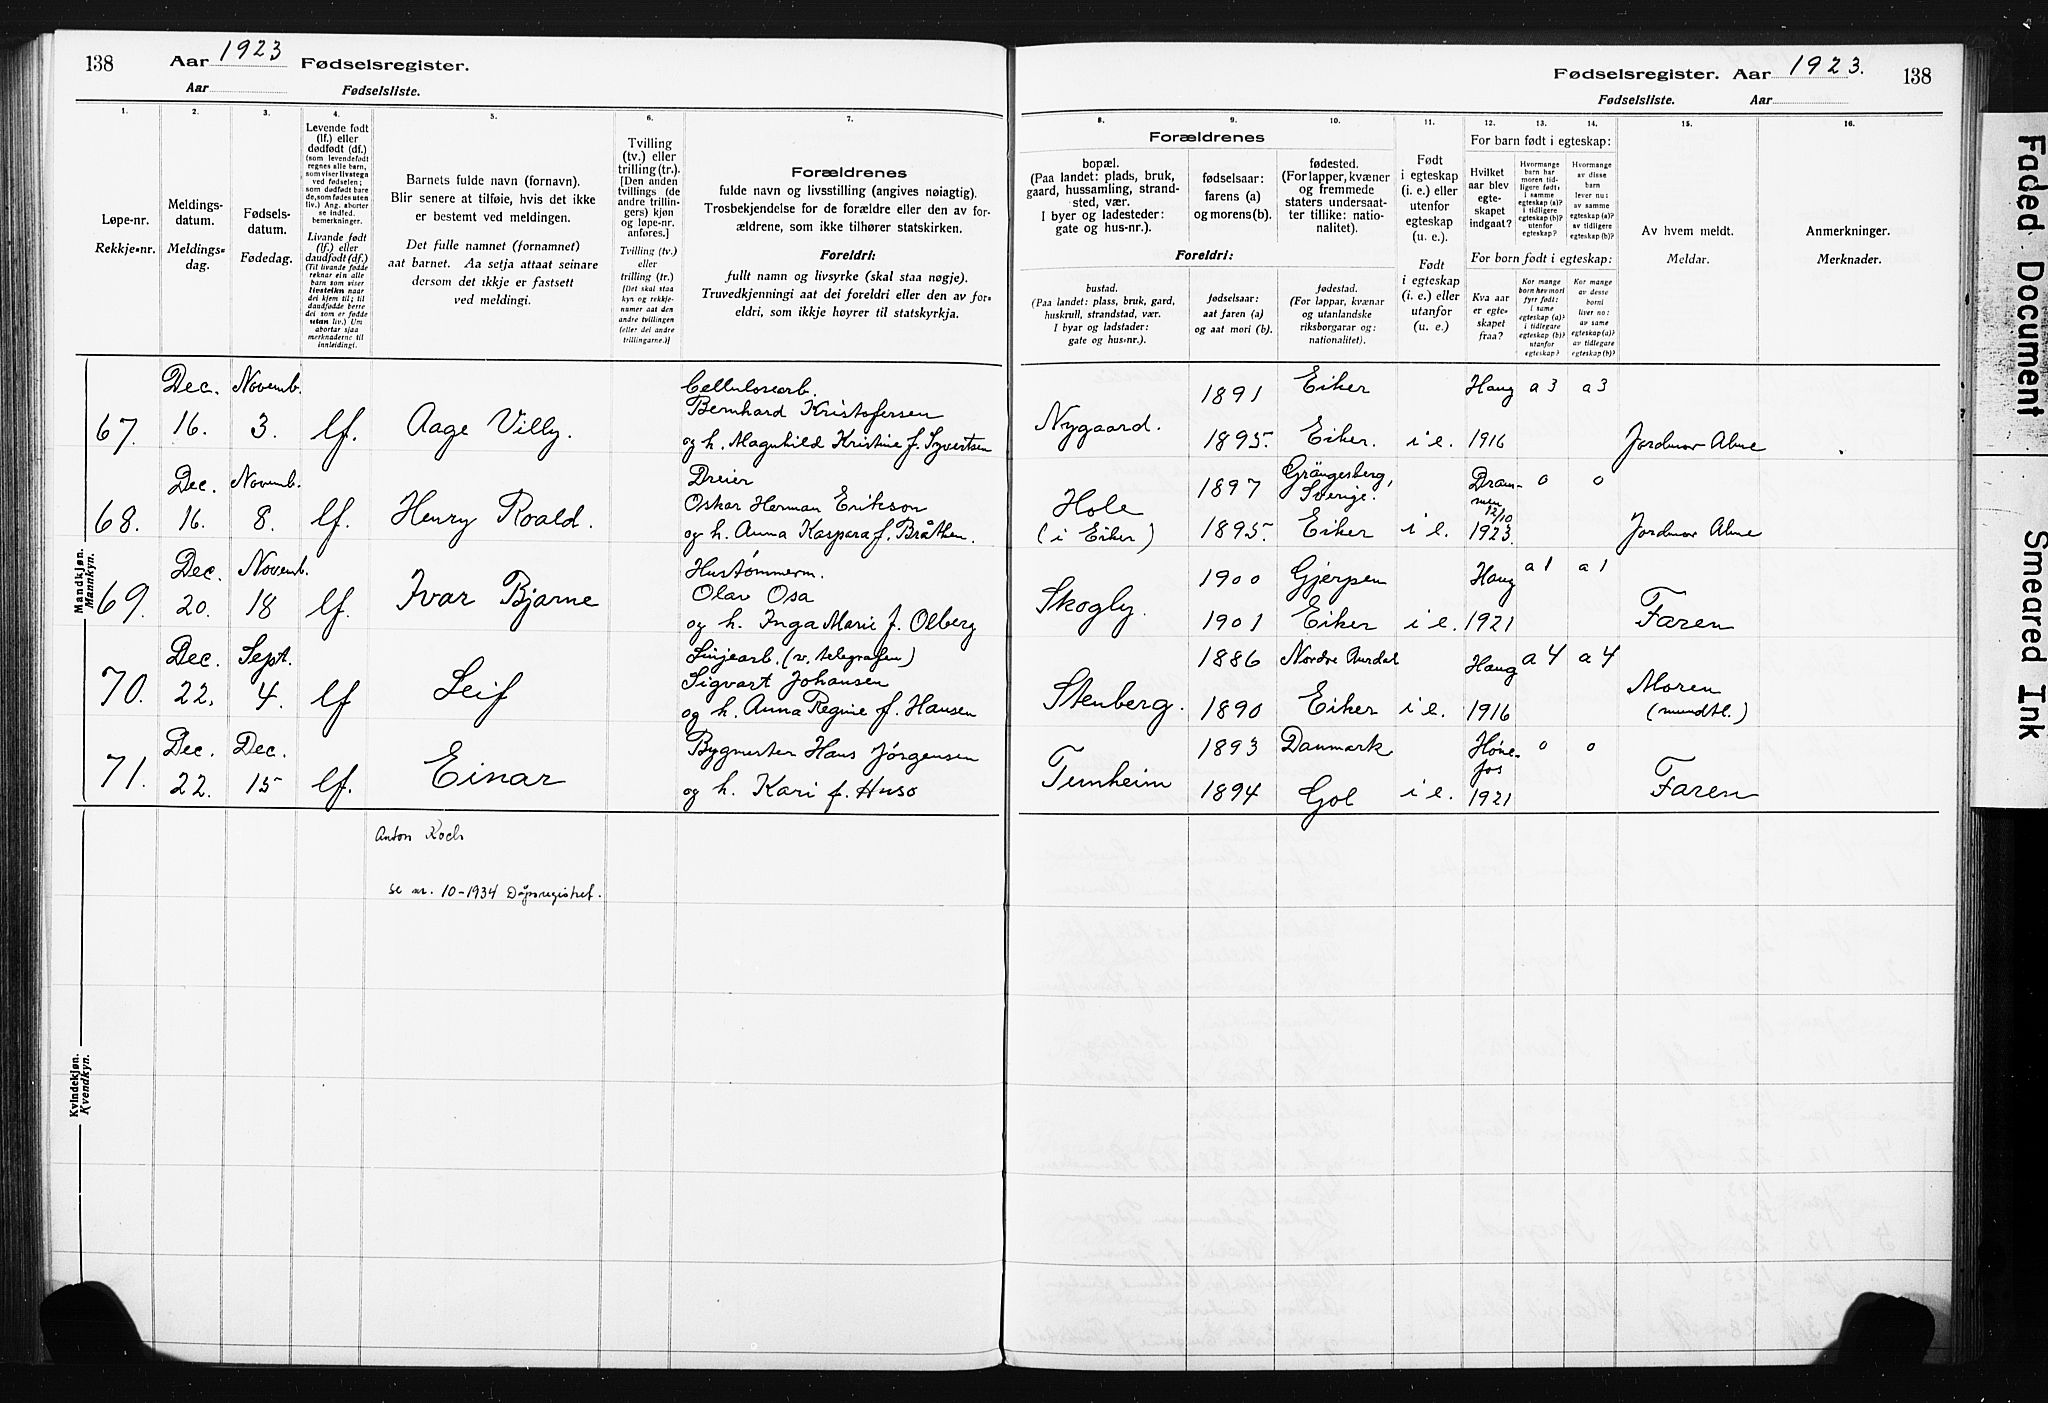 138
Aar 1923 Fødselsregister.
Aar Fødselsliste.
1.
Løpe-nr.
Rekkje-nr.
2.
Meldings-
datum.
Meldings-
dag.
3.
Fødsels-
datum.
Fødedag.
4.
Levende født
(lf.) eller
dødfødt (df.)
(som levendefødt
regnes alle barn,
som viser livstegn
ved fødselen;
som dødfødt bare
de, som fødes uten
liv.) Ang. aborter
se indled.
bemerkninger.
Livande født
(lf.) eller
daudfødt (df.)
(Til livande fødde
reknar ein alle
barn som viser
livsteikn naar
dei kjem til; til
daudfødde berre
dei som er fødde
utan liv.) Um
abortar sjaa
merknaderne til
innleidingi.
5.
Barnets fulde navn (fornavn).
Blir senere at tilføie, hvis det ikke
er bestemt ved meldingen.
Det fulle namnet (fornamnet)
aat barnet. Aa setja attaat seinare
dersom det ikkje er fastsett
ved meldingi.
6.
Tvilling
(tv.) eller
trilling (tr.).
[Den anden
tvillings (de
andre trillin-
gers) kjøn
og løpe-nr.
anføres.]
Tvilling (tv.)
eller
trilling (tr.)
[Det skal staa
kyn og rekkje-
numer aat den
andre tvillingen
(eller dei andre
trillingarne.)]
7.
Forældrenes
fulde navn og livsstilling (angives nøiagtig).
Trosbekjendelse for de forældre eller den av for-
ældrene, som ikke tilhører statskirken.
Foreldri:
fullt namn og livsyrke (skal staa nøgje).
Truvedkjenningi aat dei foreldri eller den av for-
eldri, som ikkje høyrer til statskyrkja.
Mandkjøn.
Mannkyn.
67.
Dec.
16.
Novemb.
3.
lf.
Aage Villy.
Cellulosearb.
Bernhard Kristofersen
og h. Magnhild Kristine f. Syvertsen
68.
Dec.
16.
Novemb.
8.
lf.
Henry Roald.
Dreier
Oskar Herman Erikson
og h. Anna Kaspara f. Bråthen.
69.
Dec.
20.
Novemb.
18
lf.
Ivar Bjarne
Hustømmerm.
Olav Osa
og h. Inga Marie f. Olberg
70.
Dec.
22.
Sept.
4.
lf
Leif
Linjearb. (v. telegrafen)
Sigvart Johansen
og h. Anna Regine f. Hansen
71.
Dec.
22.
Dec.
15
lf.
Einar
Bygmester Hans Jörgensen
og h. Kari f. Huso
Anton Koch
se nr. 10-1934 Dåpsregistret.
Kvindekjøn.
Kvendkyn.
Fødselsregister. Aar 1923.
138
Fødselsliste. Aar
8.
Forældrenes
bopæl.
(Paa landet: plads, bruk,
gaard, hussamling, strand-
sted, vær.
I byer og ladesteder:
gate og hus-nr.).
Foreldri:
bustad.
(Paa landet: plass, bruk, gard,
huskrull, strandstad, vær.
I byar og ladstader:
gate og hus-nr.).
9.
fødselsaar:
farens (a)
og morens (b).
fødselsaar:
aat faren (a)
og aat mori (b).
10.
fødested.
(For lapper, kvæner
og fremmede
staters undersaat-
ter tillike: natio-
nalitet).
fødestad.
(For lappar, kvænar
og utanlandske
riksborgarar og:
nationalitet).
11.
Født
i egteskap
(i. e.) eller
utenfor
egteskap
(u. e.).
Født
i egteskap
(i. e.) eller
utanfor
(u. e.)
12. 13. 14.
For barn født i egteskap:
Hvilket
aar blev
egte-
skapet
indgaat?
Hvormange
barn har
moren tid-
ligere født:
i samme
egteskap (a)?
i tidligere
egteskap (b)?
utenfor
egteskap?
Hvormange
av disse
barn
lever nu:
av samme
egteskap (a)?
av tidligere
egteskap (b)?
For born født i egteskap:
Kva aar
er egte-
skapet
fraa?
Kor mange
born hev mori
fyrr født:
i same
egteskap (a)?
i tidlegare
egteskap (b)?
utanfor
egteskap?
Kor mange
av desse
borni
liver no:
av same
egteskap (a)?
av tidlegare
egteskap (b)?
15.
Av hvem meldt.
Meldar.
16.
Anmerkninger.
Merknader.
Nygaard.
1891
1895.
Eiker
Eiker.
i e.
Haug
1916
a 3
a 3
Jordmor Alme
Hole
(i Eiker)
1897
1895.
Grängesberg,
Sverige.
Eiker
i e.
Dram-
men
12/10
1923.
o
o
Jordmor Alme
Skogly.
1900
1901
Gjerpen
Eiker
i e.
Haug
1921
a 1
a 1
Faren
Stenberg.
1886
1890
Nordre Aurdal
Eiker
i e.
Haug
1916
a 4
a 4
Moren
(mundtl.)
1893
1894
Danmark
Gol
i e.
Høne-
fos
1921
o
o
Faren
Faded Document
Smeared Ink